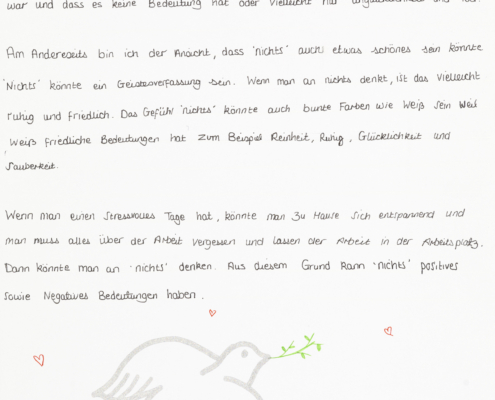 war und dass es keine Bedeutung hat oder vielleicht nur
Am Andererseits bin ich der Ansicht, dass 'nichts' auch etwas schönes sein könnte
'Nichts' könnte ein Geistesverfassung sein. Wenn man an nichts denkt, ist das vielleicht
ruhig und friedlich. Das Gefühl 'nichts' könnte auch bunte Farben wie Weiß sein Weil
Weiß friedliche Bedeutungen hat zum Beispiel Reinheit, Ruhig, Glücklichkeit und
Sauberkeit.
Wenn man einen stressvolles Tage hat, könnte man zu Hause sich entspannend und
man muss alles über der Arbeit vergessen und lassen der Arbeit in der Arbeitsplatz.
Dann könnte man an 'nichts' denken. Aus diesem Grund kann 'nichts' positives
sowie Negatives Bedeutungen haben.